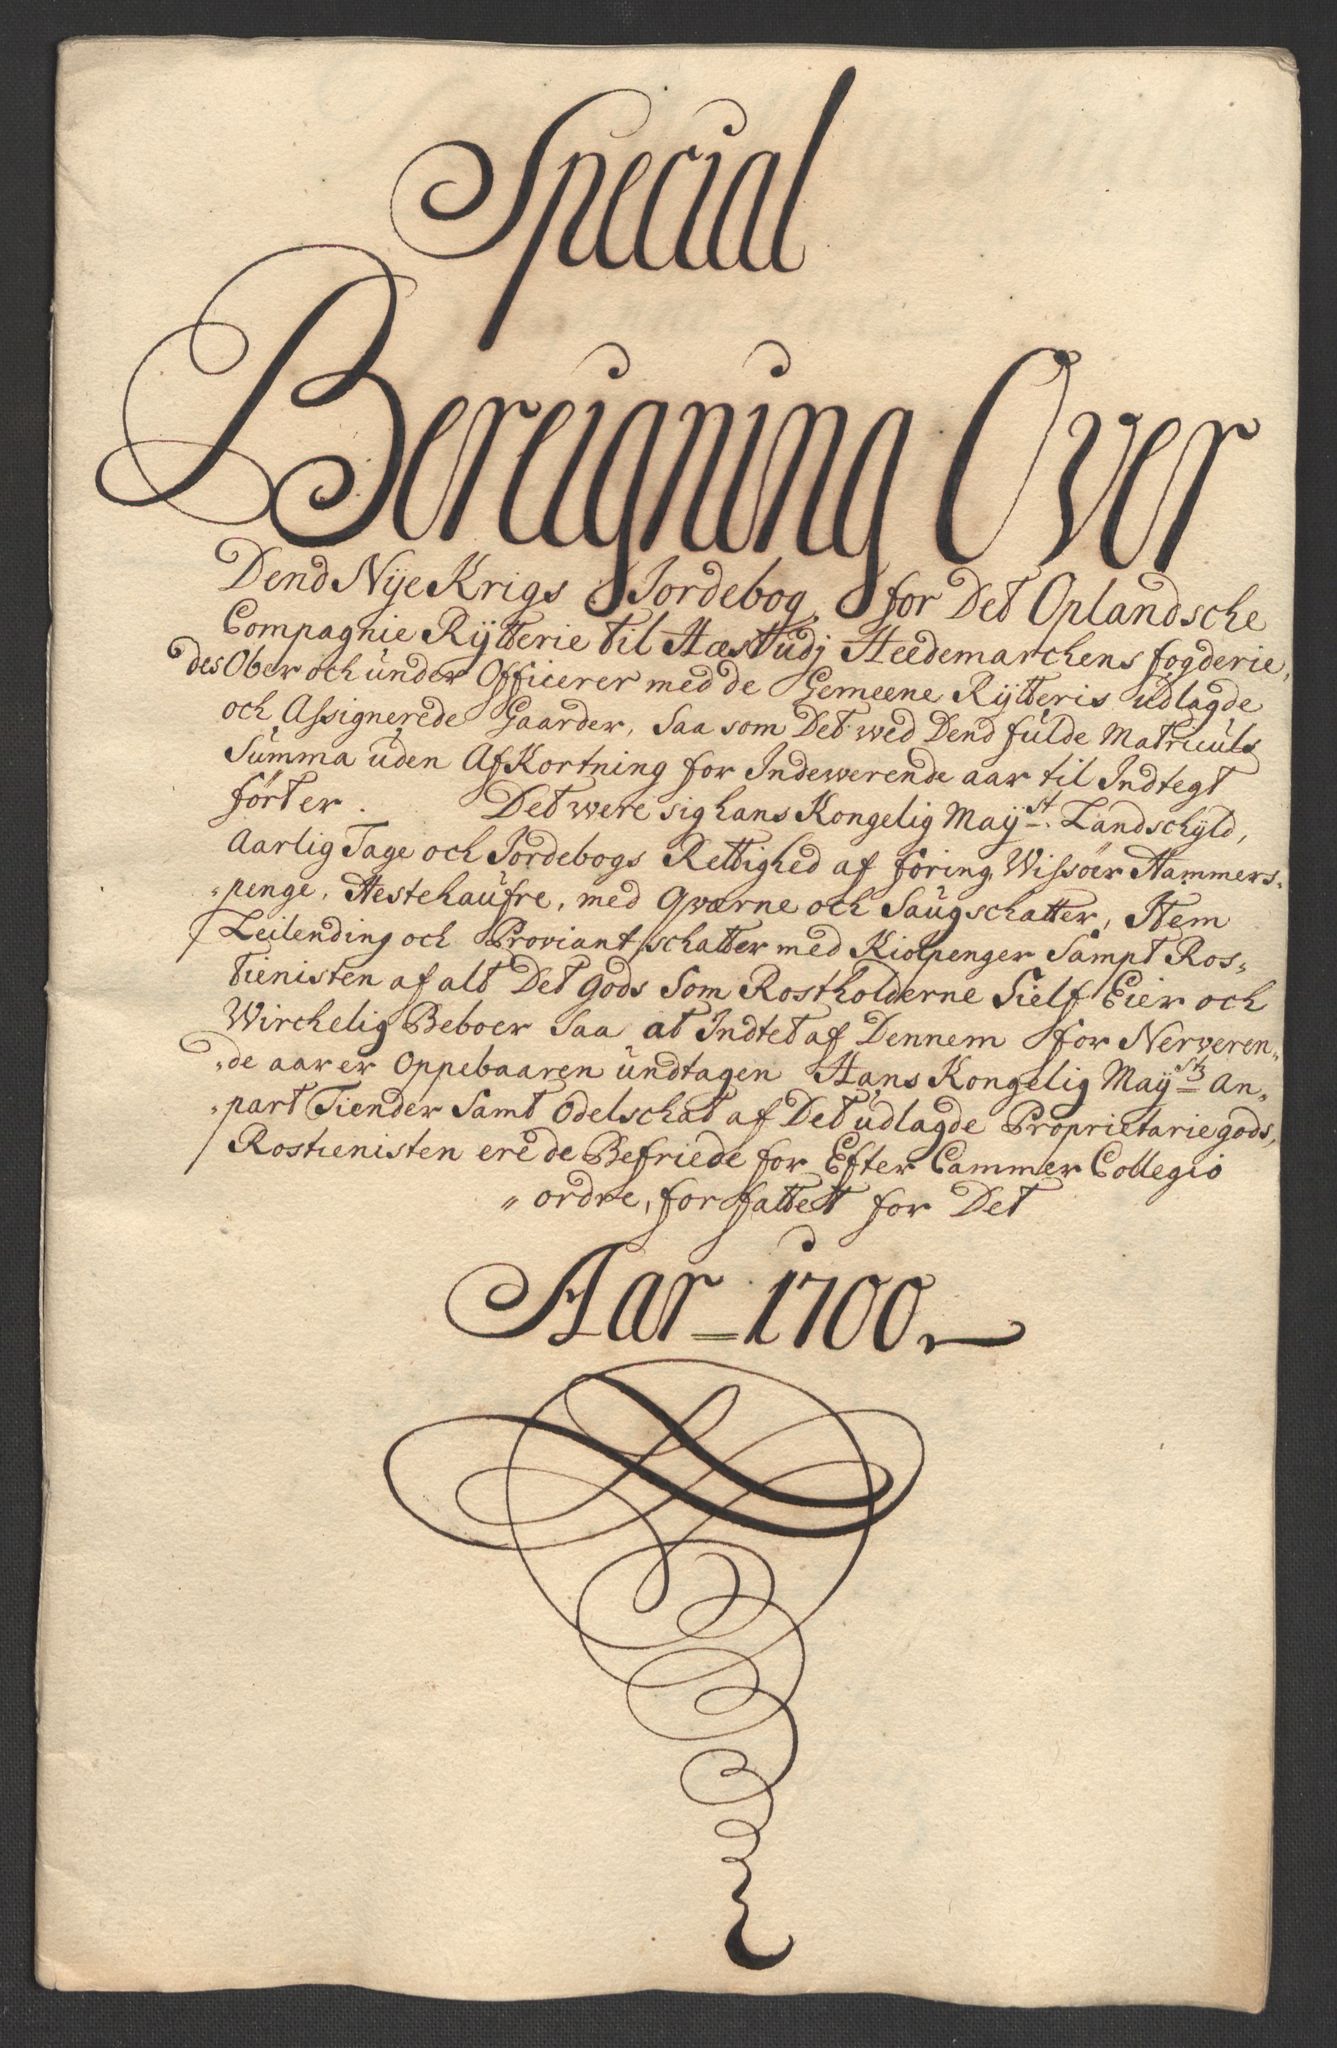 Special
Bereigning Over
Dend Nÿe Krigs Jordebog, for Det Oplandsche
Compagnie Rÿtterie til Hæst udj Heedemarchens fogderie,
des Ober och under Officerer med de Gemeene Rÿtteris udlagde
och Assignerede Gaarder, Saa som Det wed Dend fulde Matriculs
Summa uden AfKortning for Indewerende aar til Indtegt
fört er. Det were sig hans Kongelig Maÿst. Landschÿld,
Aarlig Tage och Jordebogs Rettighed af föring Wissöer Hammers-
penge, Hestehaufre, med Qvarne och Saugschatter, Item
Leilending och Proviant schatter med Kiolpenger Sampt Ros-
tienisten af alt Det Gods Som Rostholderne Sielf Eier och
Wirchelig Beboer Saa at Indtet af Dennem for Nerveren-
de aar er Oppebaaren undtagen Hans Kongelig Maÿsts An-
part Tiender Samt Odelschat af Det udlagde Proprietarie gods,
Rostienisten ere de Befriede for Efter Cammer Collegio
ordre, forfattet for Det
Aar 1700